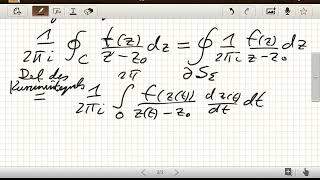 1/(2πi) ∮_C f(z)/(z-z₀) dz = ∮_{∂S_ε} 1/(2πi) f(z)/(z-z₀) dz
Def des
Kurvenintegrals
= 1/(2πi) ∫_0^{2π} f(z(t))/(z(t)-z₀) dz(t)/dt dt